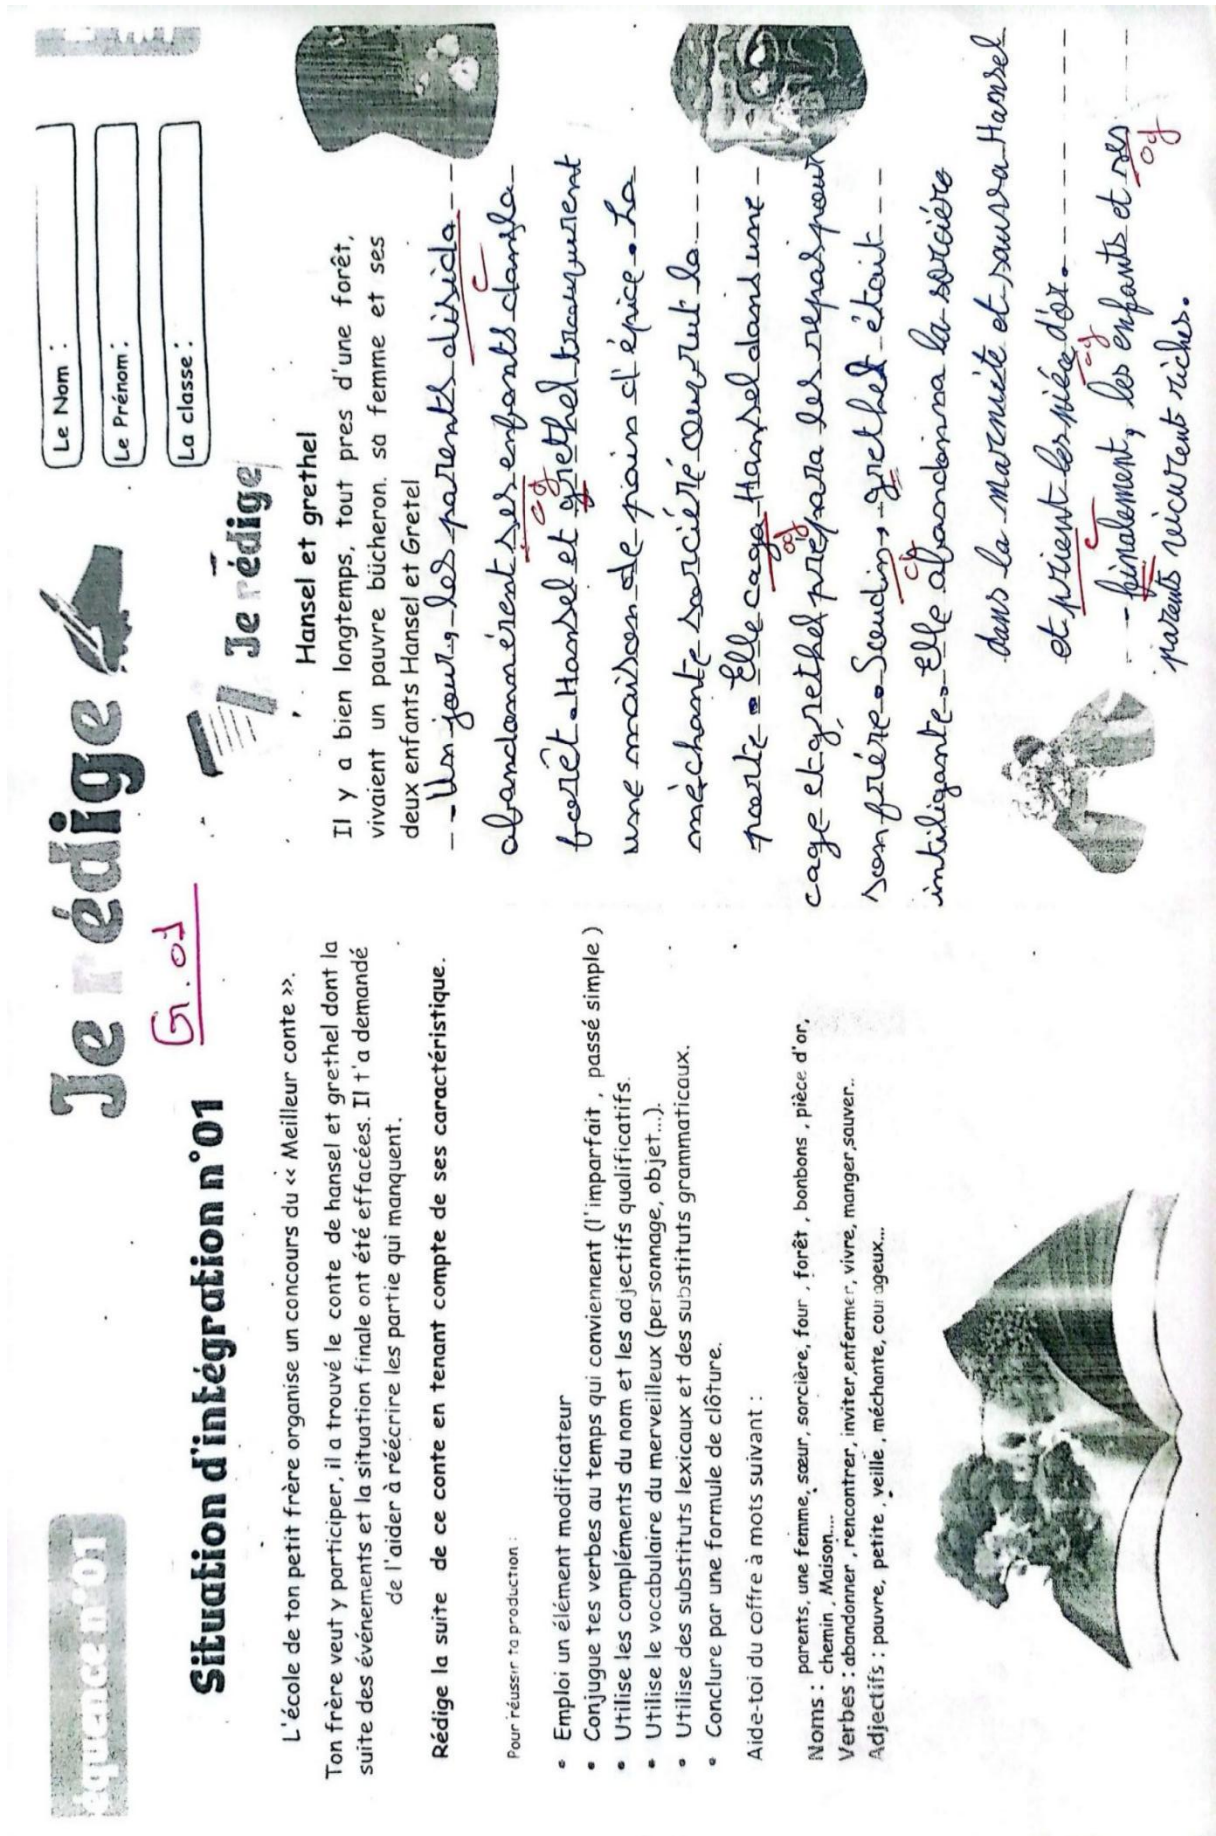 équence n°01
Je rédige
Gr. 01
Situation d'intégration n°01
L'école de ton petit frère organise un concours du << Meilleur conte >>.
Ton frère veut y participer, il a trouvé le conte de hansel et grethel dont la
suite des événements et la situation finale ont été effacées. Il t'a demandé
de l'aider à réécrire les partie qui manquent.
Rédige la suite de ce conte en tenant compte de ses caractéristique.
Pour réussir ta production :
• Emploi un élément modificateur
• Conjugue tes verbes au temps qui conviennent (l'imparfait , passé simple )
• Utilise les compléments du nom et les adjectifs qualificatifs.
• Utilise le vocabulaire du merveilleux (personnage, objet...).
• Utilise des substituts lexicaux et des substituts grammaticaux.
• Conclure par une formule de clôture.
Aide-toi du coffre à mots suivant :
Noms : parents, une femme, sœur, sorcière, four , forêt , bonbons , pièce d'or,
chemin , Maison....
Verbes : abandonner , rencontrer, inviter,enfermer, vivre, manger,sauver..
Adjectifs : pauvre, petite , veille , méchante, courageux...
Le Nom :
Le Prénom:
La classe :
Je rédige
Hansel et grethel
Il y a bien longtemps, tout pres d'une forêt,
vivaient un pauvre bûcheron. sa femme et ses
deux enfants Hansel et Gretel
Un jour, les parents disida
c
abandonnérent ses enfants dans la
og
forêt. Hansel et grethel trouvurent
une maison de pain d'épice. La
méchante sorciére ouvrut la
porte. Elle caga Hansel dans une
og
cage et grethel prépara les repas pour
son frére. Soudin, grethel était
ch
intiligante. Elle abandonna la sorciére
dans la marmite et sauva Hansel
et prient les piéce d'or.
c
og
finalement, les enfants et ses
og
parents vicurent riches.